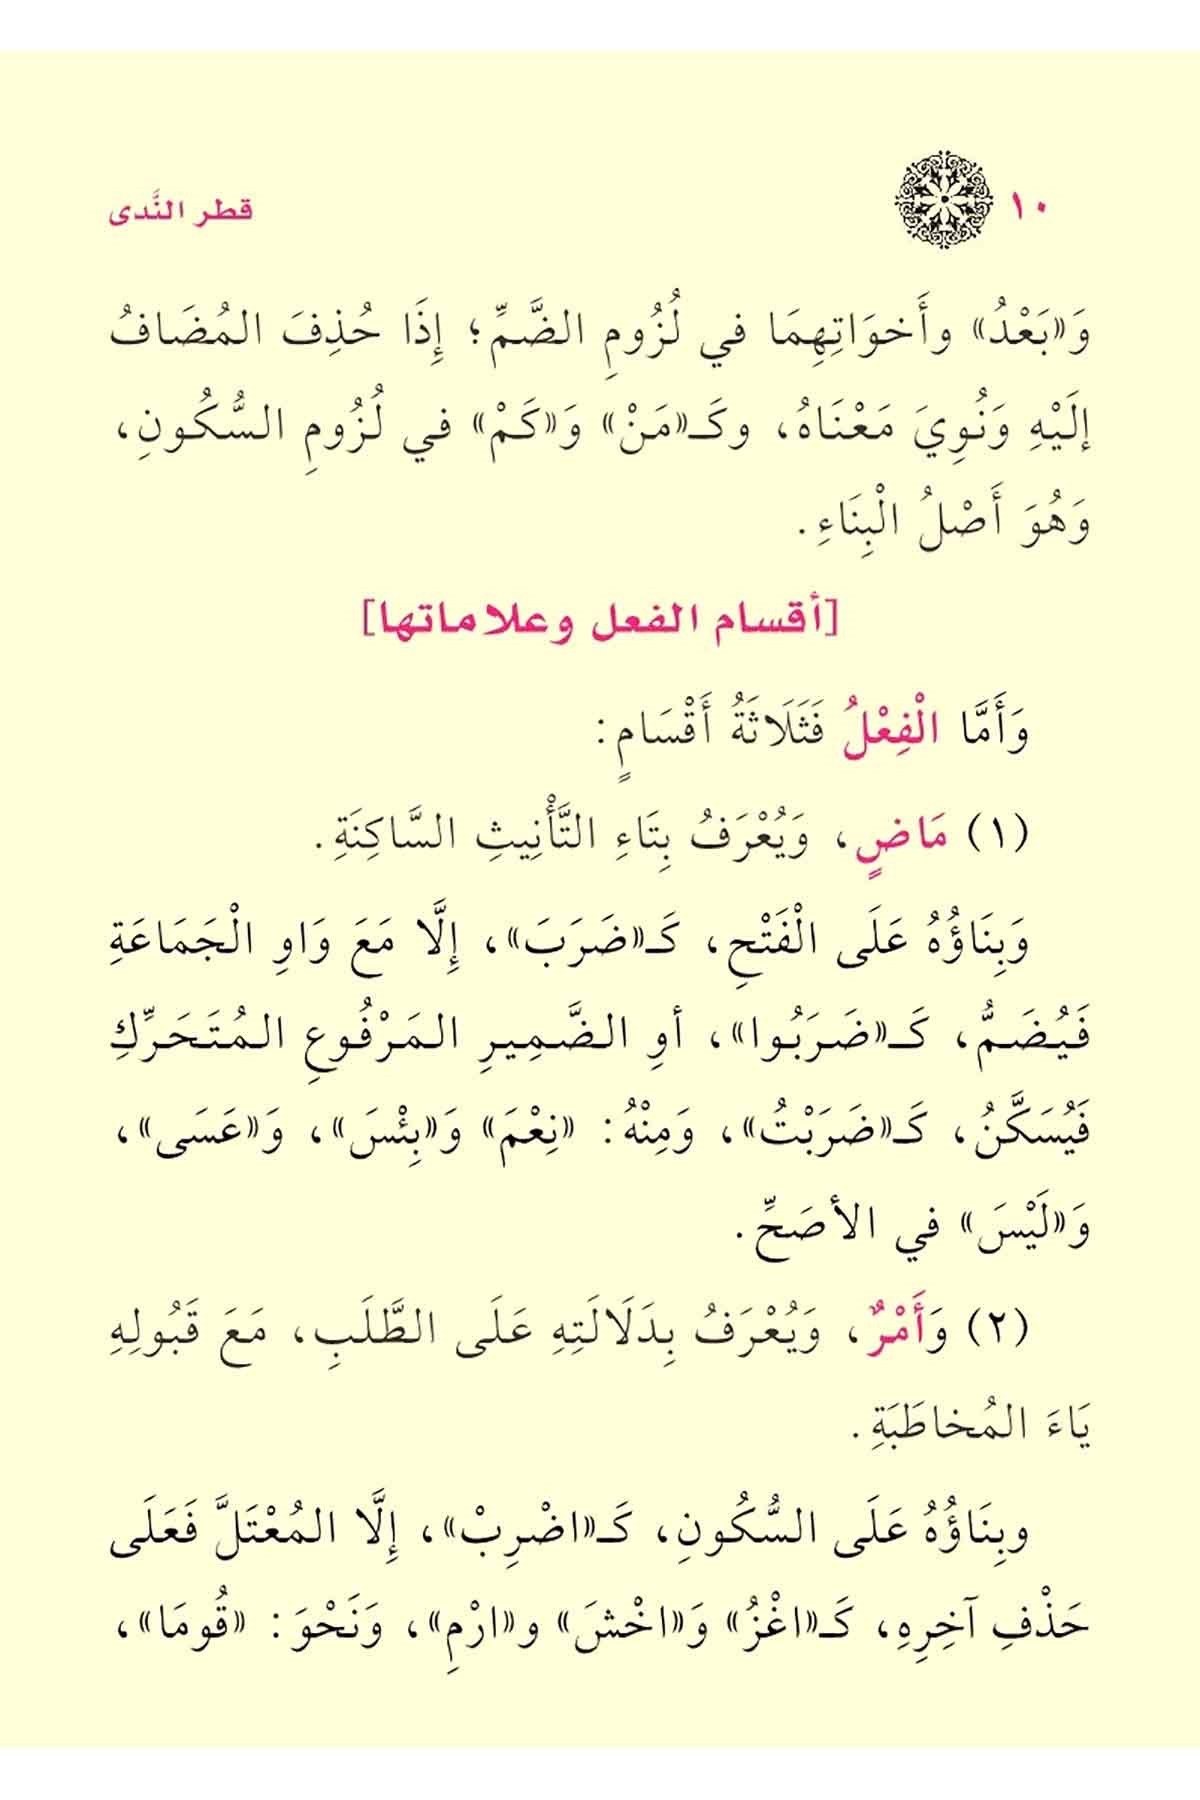 ١٠ قطر النَّدى
وَ«بَعْدُ» وأَخوَاتِهِمَا في لُزُومِ الضَّمِّ؛ إِذَا حُذِفَ المُضَافُ
إلَيْهِ وَنُوِيَ مَعْنَاهُ، وكَـ«مَنْ» وَ«كَمْ» في لُزُومِ السُّكُونِ،
وَهُوَ أَصْلُ الْبِنَاءِ.
[أقسام الفعل وعلاماتها]
وَأَمَّا الْفِعْلُ فَثَلَاثَةُ أَقْسَامٍ:
(١) مَاضٍ، وَيُعْرَفُ بِتَاءِ التَّأْنِيثِ السَّاكِنَةِ.
وَبِنَاؤُهُ عَلَى الْفَتْحِ، كَـ«ضَرَبَ»، إِلَّا مَعَ وَاوِ الْجَمَاعَةِ
فَيُضَمُّ، كَـ«ضَرَبُوا»، أوِ الضَّمِيرِ المَرْفُوعِ المُتَحَرِّكِ
فَيُسَكَّنُ، كَـ«ضَرَبْتُ»، وَمِنْهُ: «نِعْمَ» وَ«بِئْسَ»، وَ«عَسَى»،
وَ«لَيْسَ» في الأصَحِّ.
(٢) وَأَمْرٌ، وَيُعْرَفُ بِدَلَالَتِهِ عَلَى الطَّلَبِ، مَعَ قَبُولِهِ
يَاءَ المُخاطَبَةِ.
وبِنَاؤُهُ عَلَى السُّكُونِ، كَـ«اضْرِبْ»، إِلَّا المُعْتَلَّ فَعَلَى
حَذْفِ آخِرِهِ، كَـ«اغْزُ» وَ«اخْشَ» و«ارْمِ»، وَنَحْوَ: «قُومَا»،